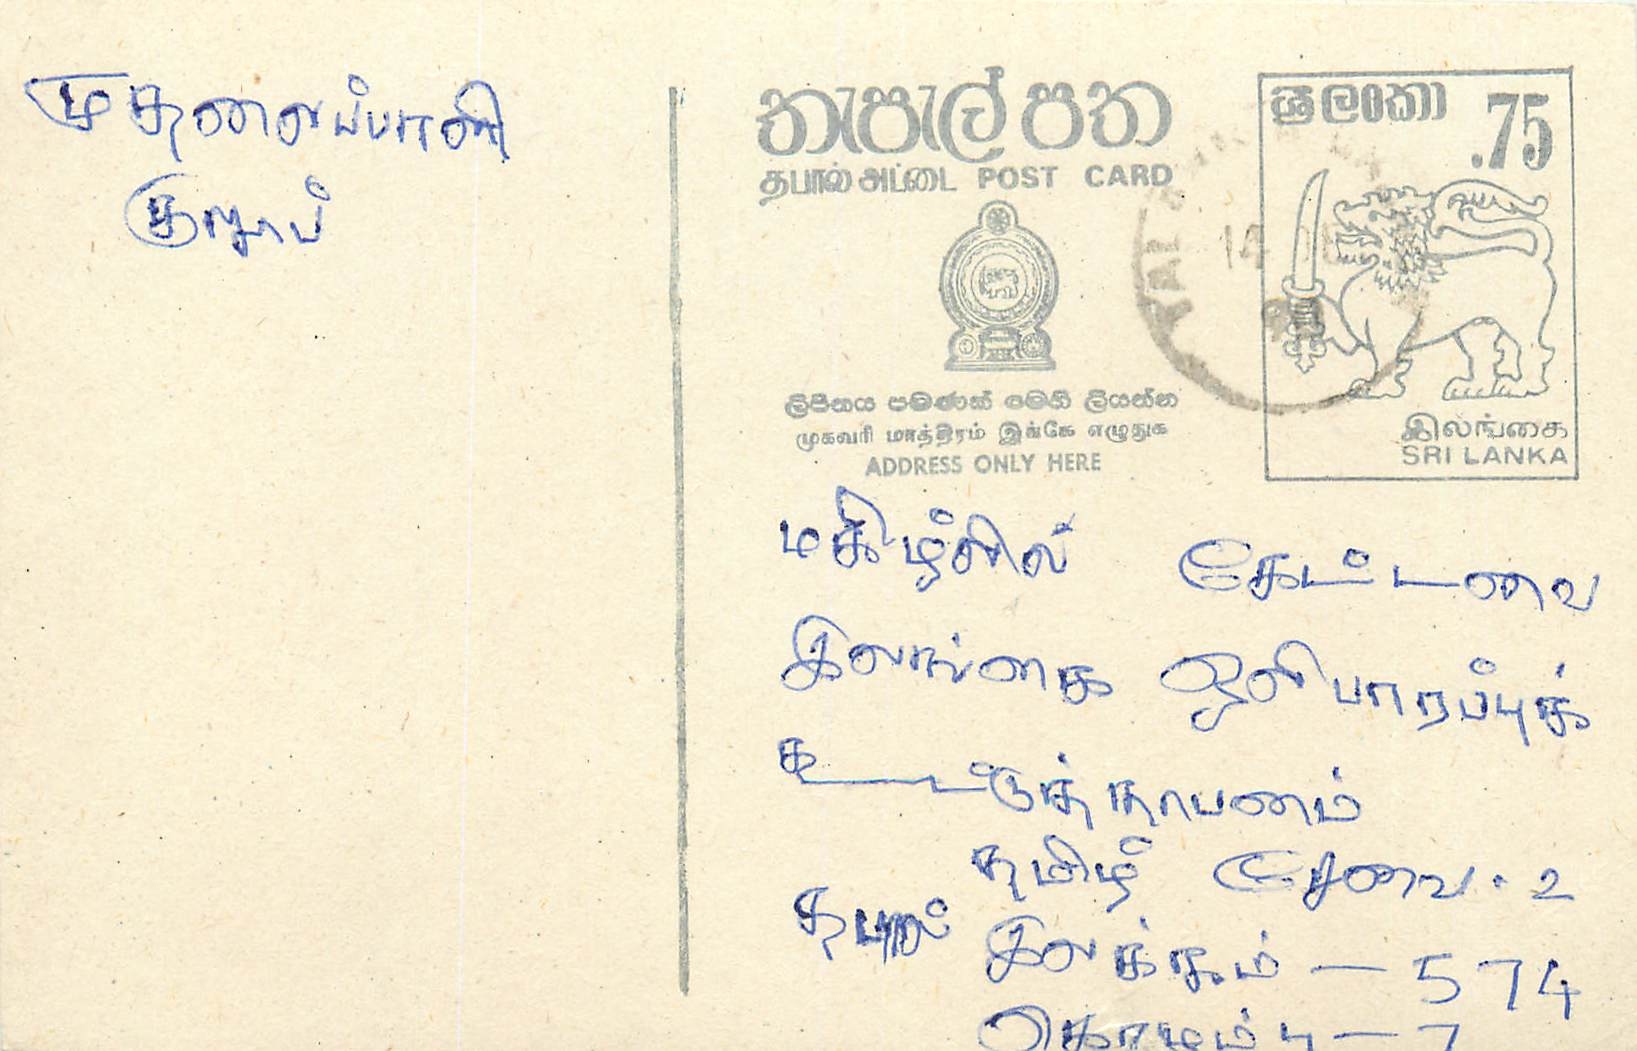 முதலைப்பாளி
තැපැල් පත
தபால் அட்டை POST CARD
ශ්‍රී ලංකා .75
14
ලිපිනය පමණක් මෙහි ලියන්න
முகவரி மாத்திரம் இங்கே எழுதுக
ADDRESS ONLY HERE
இலங்கை
SRI LANKA
கேட்டவை
இலங்கை ஒலிபரப்புக்
கூட்டுத்தாபனம்
தமிழ் சேவை - 2
தபால் இலக்கம் - 574
கொழும்பு - 7